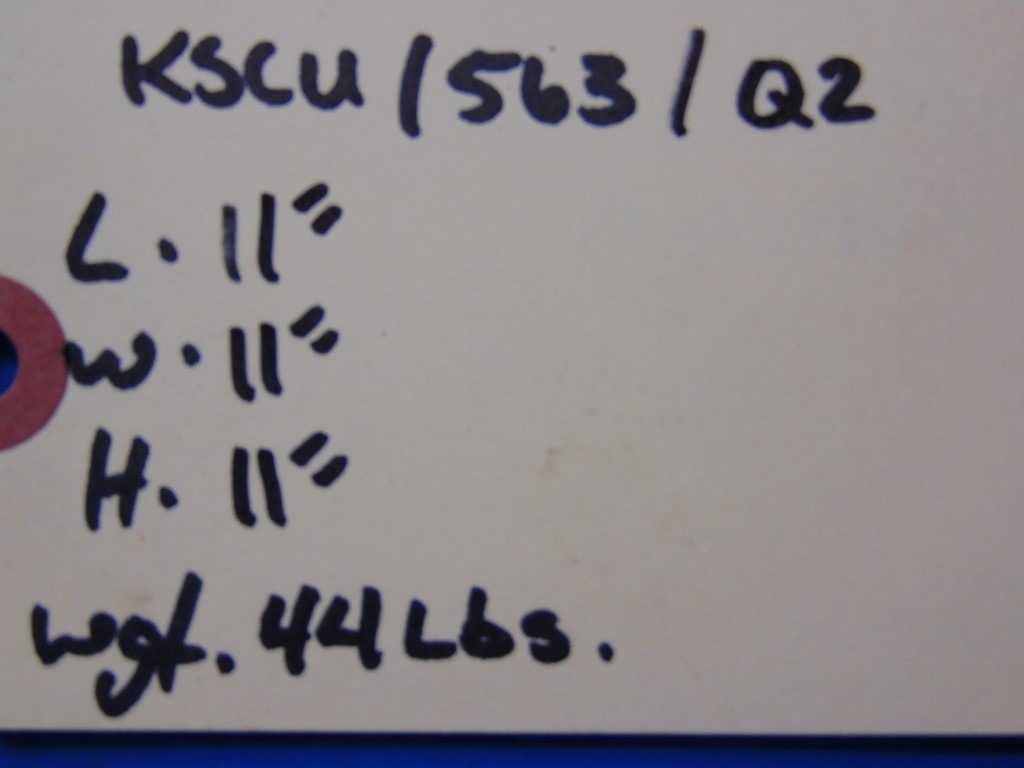 KSCU/563/Q2
L. 11"
W. 11"
H. 11"
wgt. 44 Lbs.